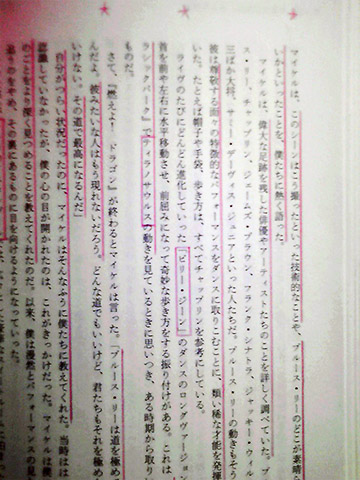 マイケルは、このシーンはこう撮ったといった技術的なことや、ブルース・リーのどこが素晴ら
いかといったことを、僕たちに熱く語った。
マイケルは、偉大な足跡を残した俳優やアーティストたちのことを詳しく調べていた。ブ
ス・リー、チャップリン、ジェームズ・ブラウン、フランク・シナトラ、ジャッキー・ウィル
三ばか大将、サミー・デイヴィス・ジュニアといった人たちだ。ブルース・リーの動きもそう
彼は尊敬する面々の特徴的なパフォーマンスをダンスに取りこむことに、類い稀な才能を発揮
いた。たとえば帽子や手袋、歩き方は、すべてチャップリンを参考にしている。
ライヴのたびにどんどん進化していった「ビリー・ジーン」のダンスのロングヴァージョン
首を前や左右に水平移動させ、前屈みになって奇妙な歩き方をする振り付けがある。これは
ラシックパーク』でティラノサウルスの動きを見ているときに思いつき、ある時期から取り
ものだ。
さて、『燃えよ！ドラゴン』が終わるとマイケルは言った。「ブルース・リーは道を極め
んだよ。彼みたいな人はもう現れないだろう。どんな道でもいいけど、君たちもそれを極め
いけない。その道で最高になるんだ」
自分がつらい状況だったのに、マイケルはそんなふうに僕たちに教えてくれた。当時はは
認識していなかったが、僕の心の目が開かれたのは、これがきっかけだった。マイケルは僕
のごとをより深く見つめることを教えてくれたのだ。以来、僕は漫然とパフォーマンスの見
追うのをやめ、その裏にあるものに目を向けるようになっていった。